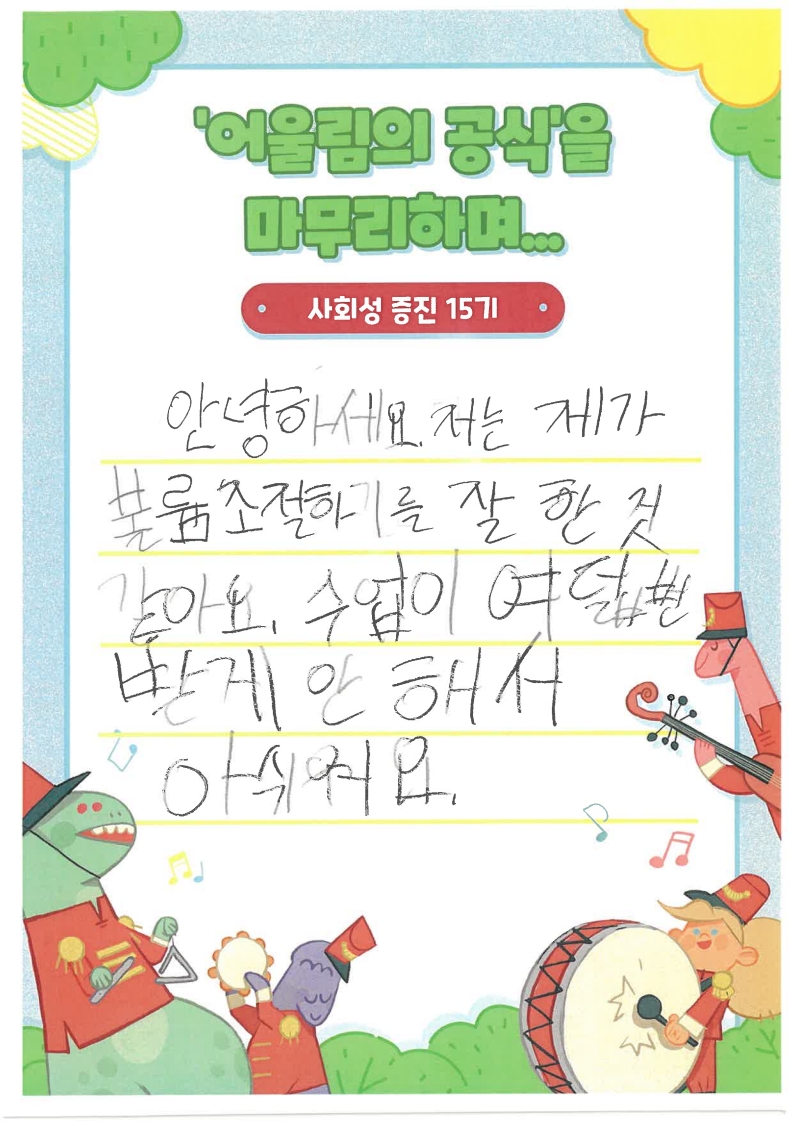 '어울림의 공식'을
마무리하며...
사회성 증진 15기
안녕하세요. 저는 제가
볼륨조절하기를 잘 한 것
같아요. 수업이 여덟번
밖게 안 해서
아쉬워요.